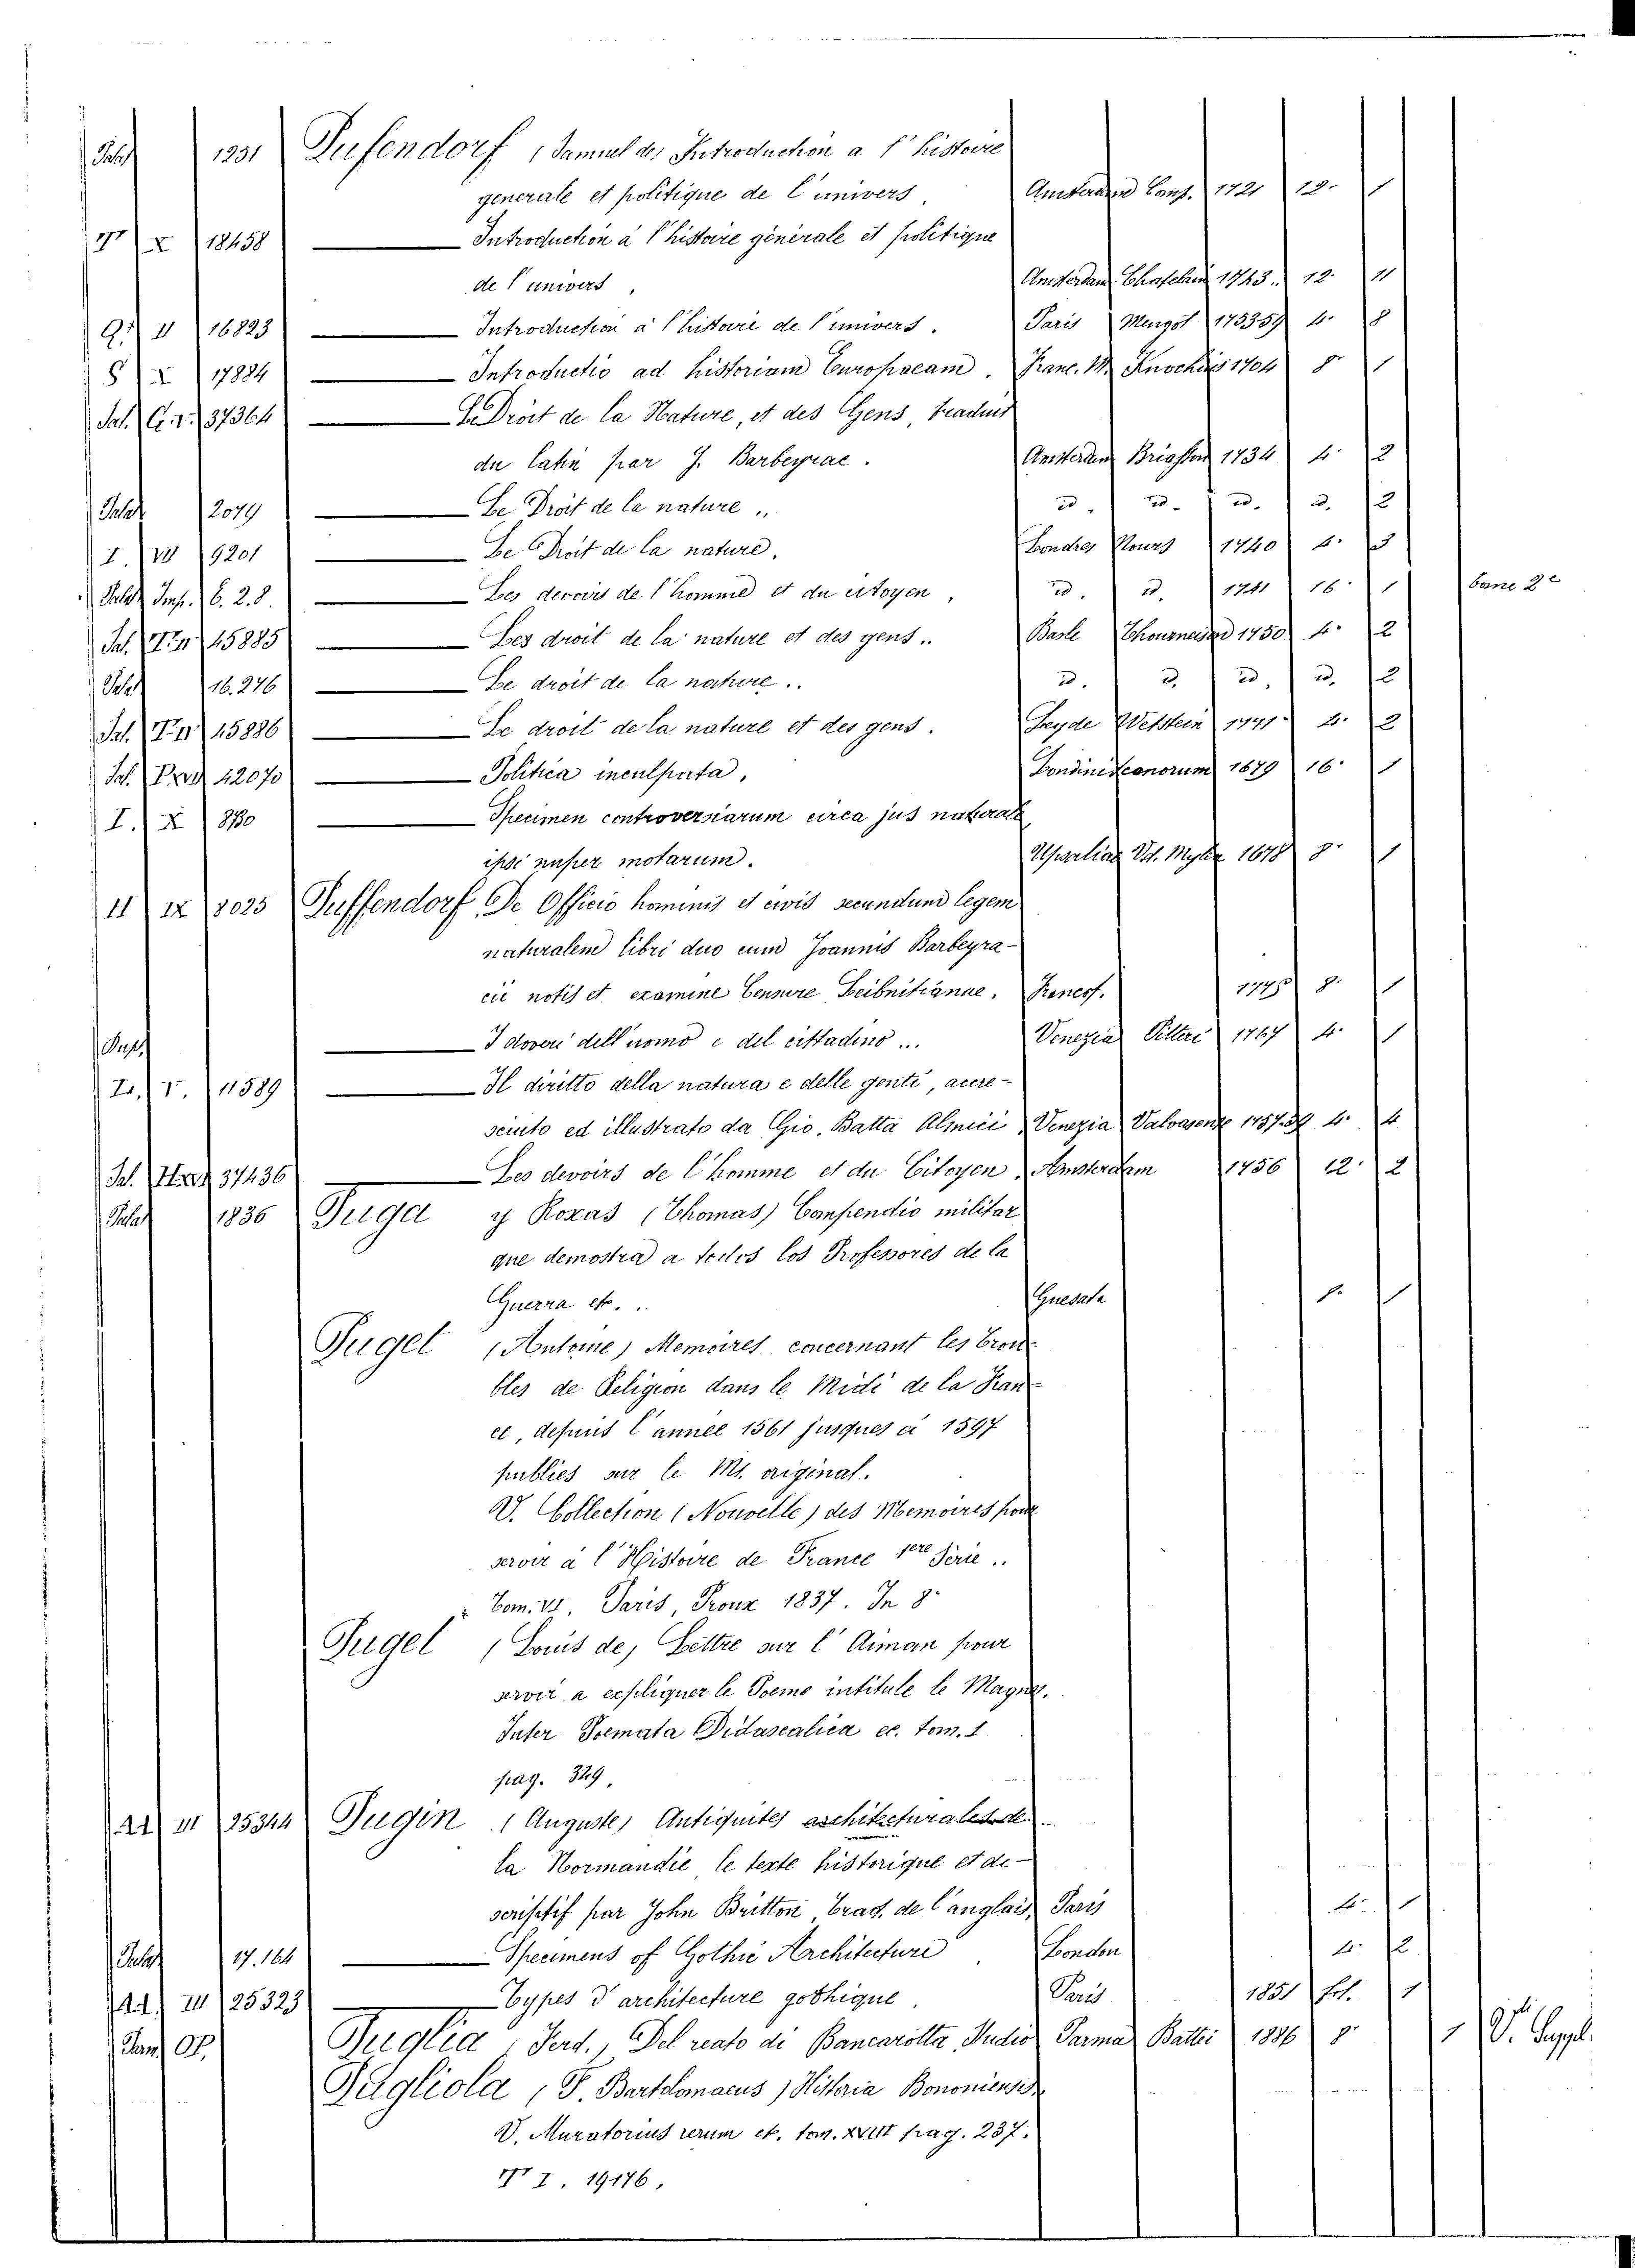 Palat 1231 Pufendorf (Samuel de) Introduction a l'histoire
generale et politique de l'univers. Amsterdam Comp. 1721 12. 1
V X 18458 Introduction à l'histoire générale et politique
de l'univers, Amsterdam Chatelain 1743.. 12. 11
Q. II 16823 Introduction à l'histoire de l'univers. Paris Merigot 175359 4. 8
S X 17884 Introductio ad historiam Europaeam. Franc. M. Knochius 1704 8. 1
Sal. 37364 Le Dròit de la Nature, et des Gens, traduit
du latin par J. Barbeyrac. Amsterdam Briasson 1734 4. 2
Palat 2079 Le Droit de la nature.. id. id. id. id. 2
I. VII 9201 Le Droit de la nature. Londres Nours 1740 4. 3
Palat Imp. 6. 2. 8. Les devoirs de l'homme et du citoyen, id. id. 1741 16. 1
Sal. 45885 Les droit de la nature et des gens.. Basle Thourneisen 1750 4. 2
Palat 16.276 Le droit de la nature.. id. id. id. id. 2
Sal. 45886 Le droit de la nature et des gens. Leyde Wetstein 1771 4. 2
Sal. 42070 Politica inculpata, Londini Scanorum 1679 16. 1
I. X Specimen controversiarum circa jus naturale
ipsi nuper motarum. Upsaliae 1678 8. 1
II IX 8025 Puffendorf, De Officio hominis et civis secundum legem
naturalem libri duo cum Joannis Barbeyra-
cii notis et examine Censure Leibnitianae. Francof. 8. 1
I doveri dell'uomo e del cittadino... Venezia Pitteri 1767 4. 1
V. 11589 Il diritto della natura e delle genti, accre-
sciuto ed illustrato da Gio. Batta Almici Venezia Valvasense 1757.59 4. 4
Sal. 37436 Les devoirs de l'homme et du Citoyen. Amsterdam 1756 12. 2
Palat 1836 Puga y Roxas (Thomas) Compendio militar
que demostra a todos los Professores de la
Guerra etc... Guesata 1
Puget (Antoine) Memoires concernant les trou-
bles de Religion dans le Midi de la Fran-
ce, depuis l'année 1561 jusques à 1597
publiés sur le Ms. original.
V. Collection (Nouvelle) des Memoires pour
servir à l'Histoire de France 1ere Série..
Tom. VI. Paris, Proux 1837. In 8°
Puget (Louis de) Lettre sur l'Aiman pour
servir a expliquer le Poeme intitule le Magnes.
Inter Poemata Didascalica ec. tom. I
pag. 329.
AA III 25344 Pugin (Auguste) Antiquités architecturales de
la Normandie, le texte historique et de-
scriptif par John Britton, trad. de l'anglais, Paris 4. 1
Palat 17.164 Specimens of Gothic Architecture London 4. 2
AA III 25323 Types d'architecture gothique. Paris 1851 fol. 1
OP. Puglia, Ferd., Del reato di Bancarotta. Studio Parma Battei 1886 8° 1 V. Suppl.
Pugliola (F. Bartolomaeus) Historia Bononiensis
V. Muratorius rerum et. tom. XVIII pag. 237.
I. 19176,